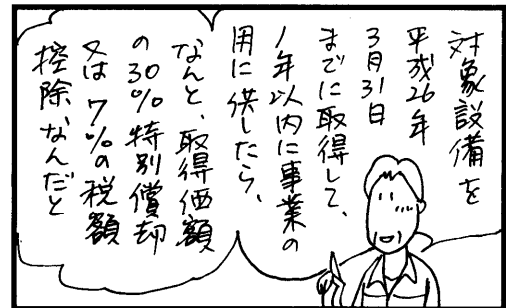 対象設備を
平成26年
3月31日
までに取得して、
1年以内に事業の
用に供したら、
なんと、取得価額
の30%特別償却
又は7%の税額
控除なんだと